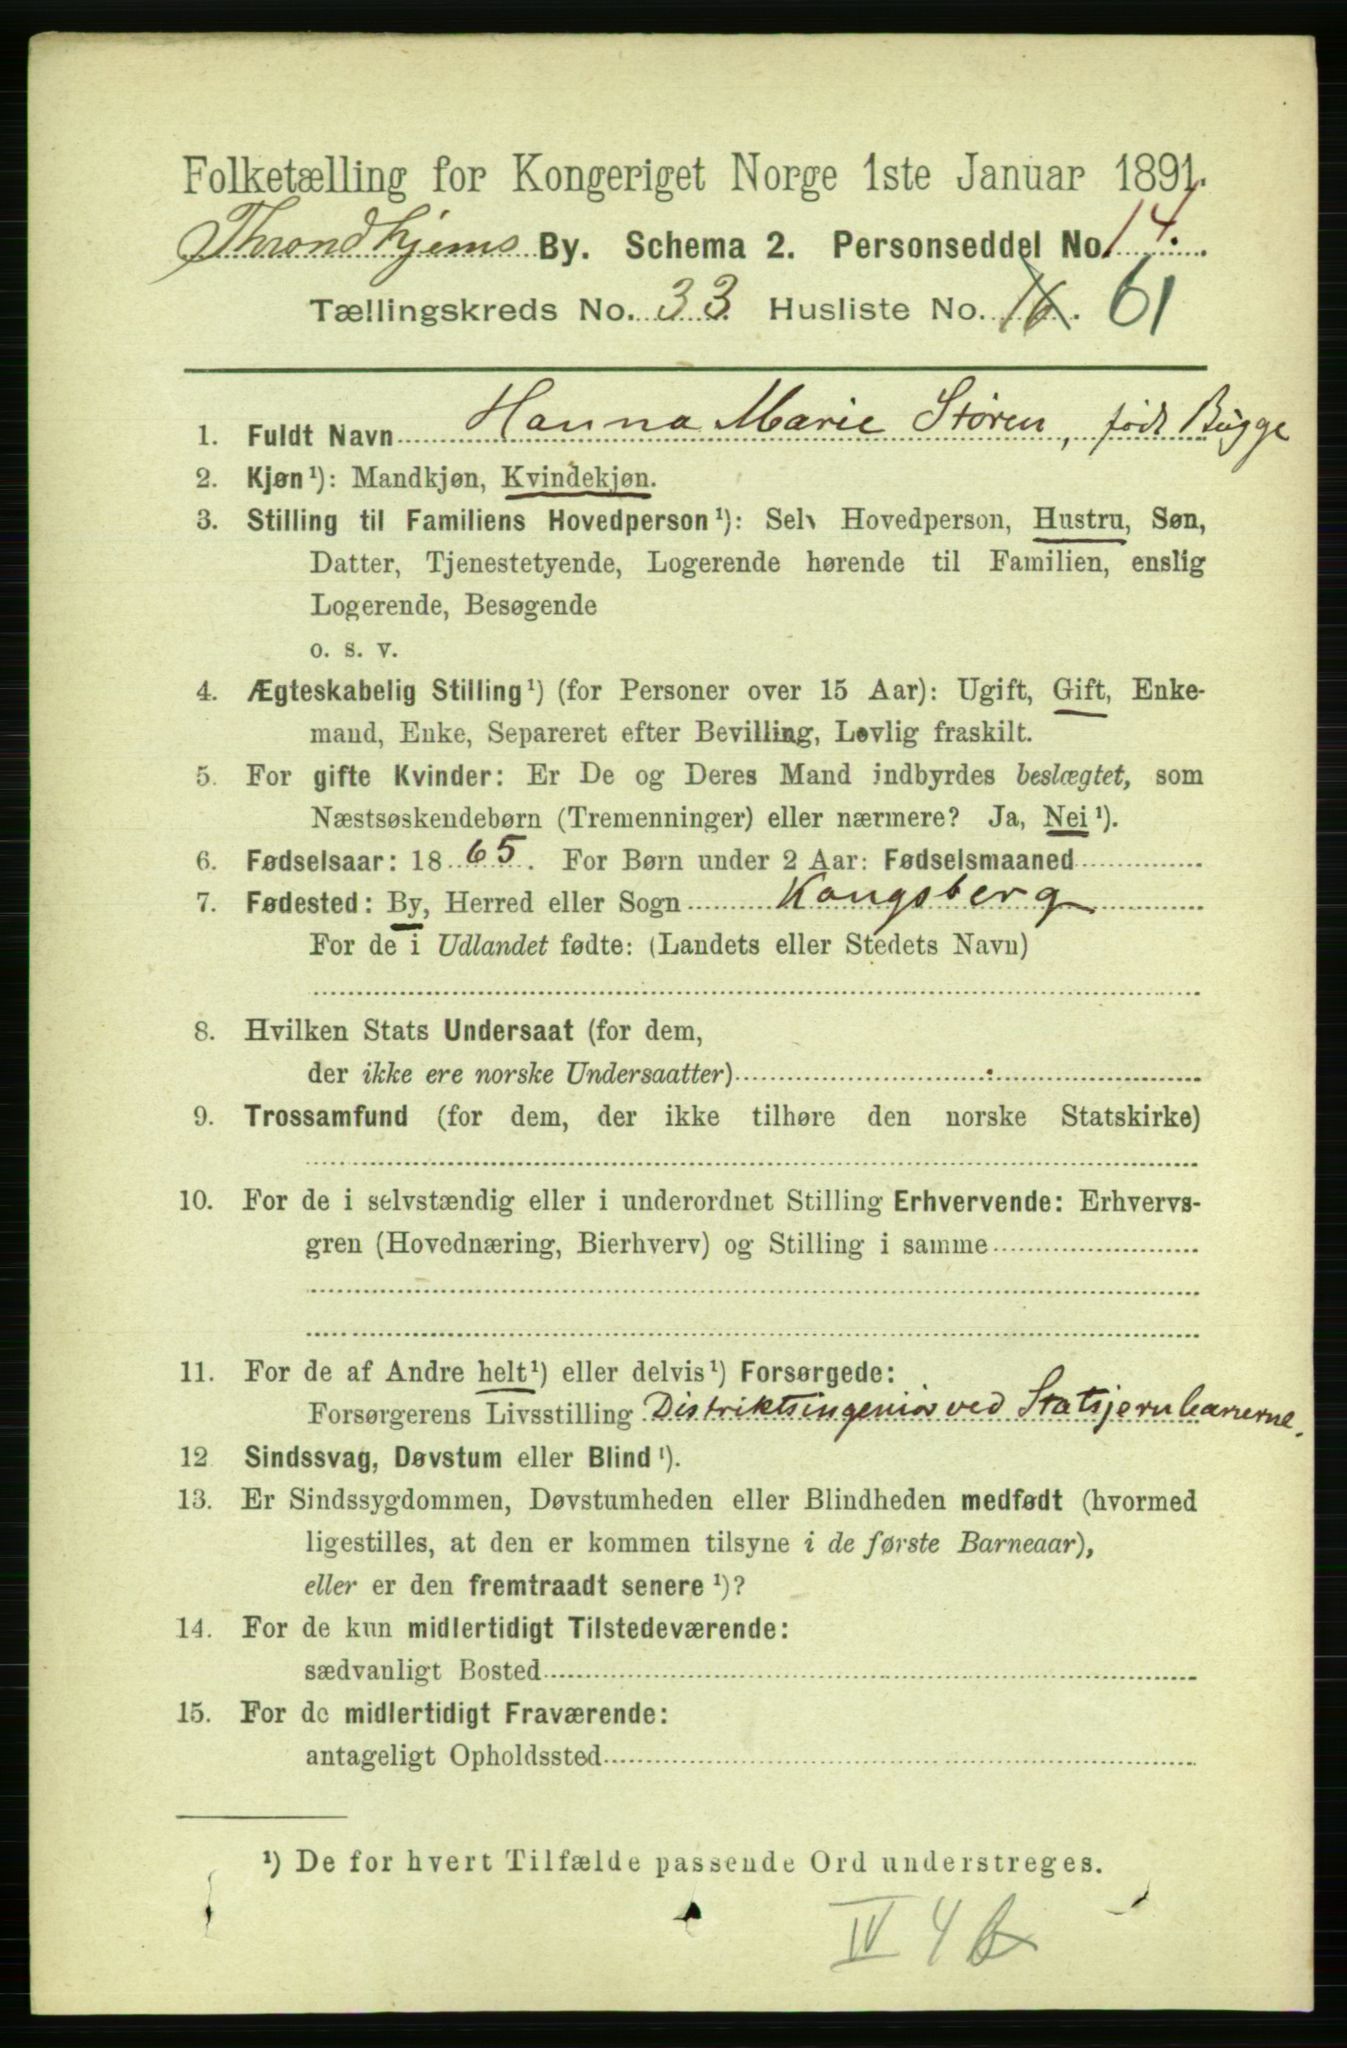 Folketælling for Kongeriget Norge 1ste Januar 1891.
Throndhjems By. Schema 2. Personseddel No. 14.
Tællingskreds No. 33 Husliste No. 16. 61
1. Fuldt Navn Hanna Marie Støren, født Bugge
2. Kjøn¹): Mandkjøn, Kvindekjøn.
3. Stilling til Familiens Hovedperson¹): Selv Hovedperson, Hustru, Søn,
Datter, Tjenestetyende, Logerende hørende til Familien, enslig
Logerende, Besøgende
o. s. v.
4. Ægteskabelig Stilling¹) (for Personer over 15 Aar): Ugift, Gift, Enke-
mand, Enke, Separeret efter Bevilling, Lovlig fraskilt.
5. For gifte Kvinder: Er De og Deres Mand indbyrdes beslægtet, som
Næstsøskendebørn (Tremenninger) eller nærmere? Ja, Nei¹).
6. Fødselsaar: 1865. For Børn under 2 Aar: Fødselsmaaned
7. Fødested: By, Herred eller Sogn Kongsberg
For de i Udlandet fødte: (Landets eller Stedets Navn)
8. Hvilken Stats Undersaat (for dem,
der ikke ere norske Undersaatter)
9. Trossamfund (for dem, der ikke tilhøre den norske Statskirke)
10. For de i selvstændig eller i underordnet Stilling Erhvervende: Erhvervs-
gren (Hovednæring, Bierhverv) og Stilling i samme
11. For de af Andre helt¹) eller delvis¹) Forsørgede:
Forsørgerens Livsstilling Distriktsingeniør ved Statsjernbanerne.
12 Sindssvag, Døvstum eller Blind¹).
13. Er Sindssygdommen, Døvstumheden eller Blindheden medfødt (hvormed
ligestilles, at den er kommen tilsyne i de første Barneaar),
eller er den fremtraadt senere¹)?
14. For de kun midlertidigt Tilstedeværende:
sædvanligt Bosted
15. For de midlertidigt Fraværende:
antageligt Opholdssted
¹) De for hvert Tilfælde passende Ord understreges.
IV 4 b